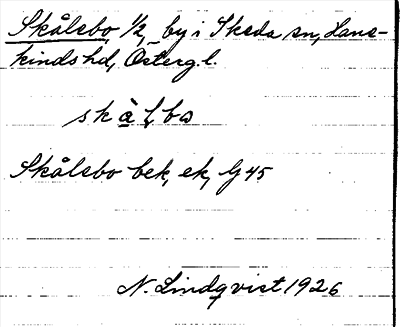 Skålsbo ½, by i Skeda sn, Hans-
kinds hd, Österg. l.
skàlbo
Skålsbo bek, ek, G 45
N. Lindqvist 1926